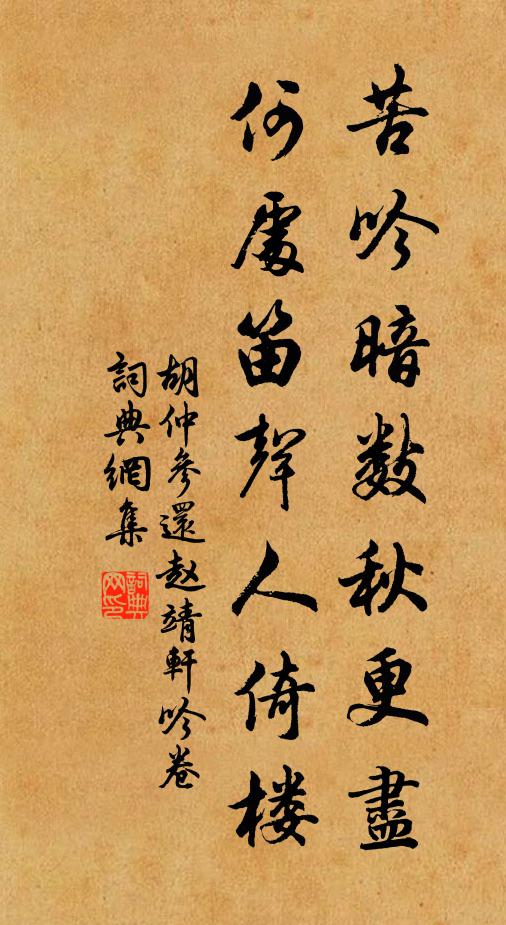 苦吟暗数秋更盡
何處笛聲人倚楼
胡仲參還赵靖軒吟卷
詞典網集
詞典网印